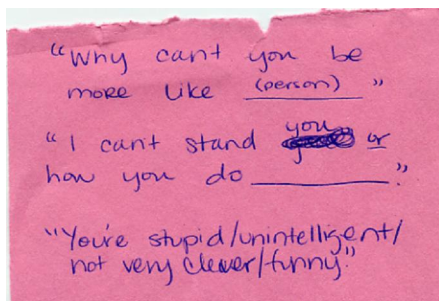 "Why can't you be
more like (person)"
"I can't stand you or
how you do ________."
"You're stupid/unintelligent/
not very clever/funny."